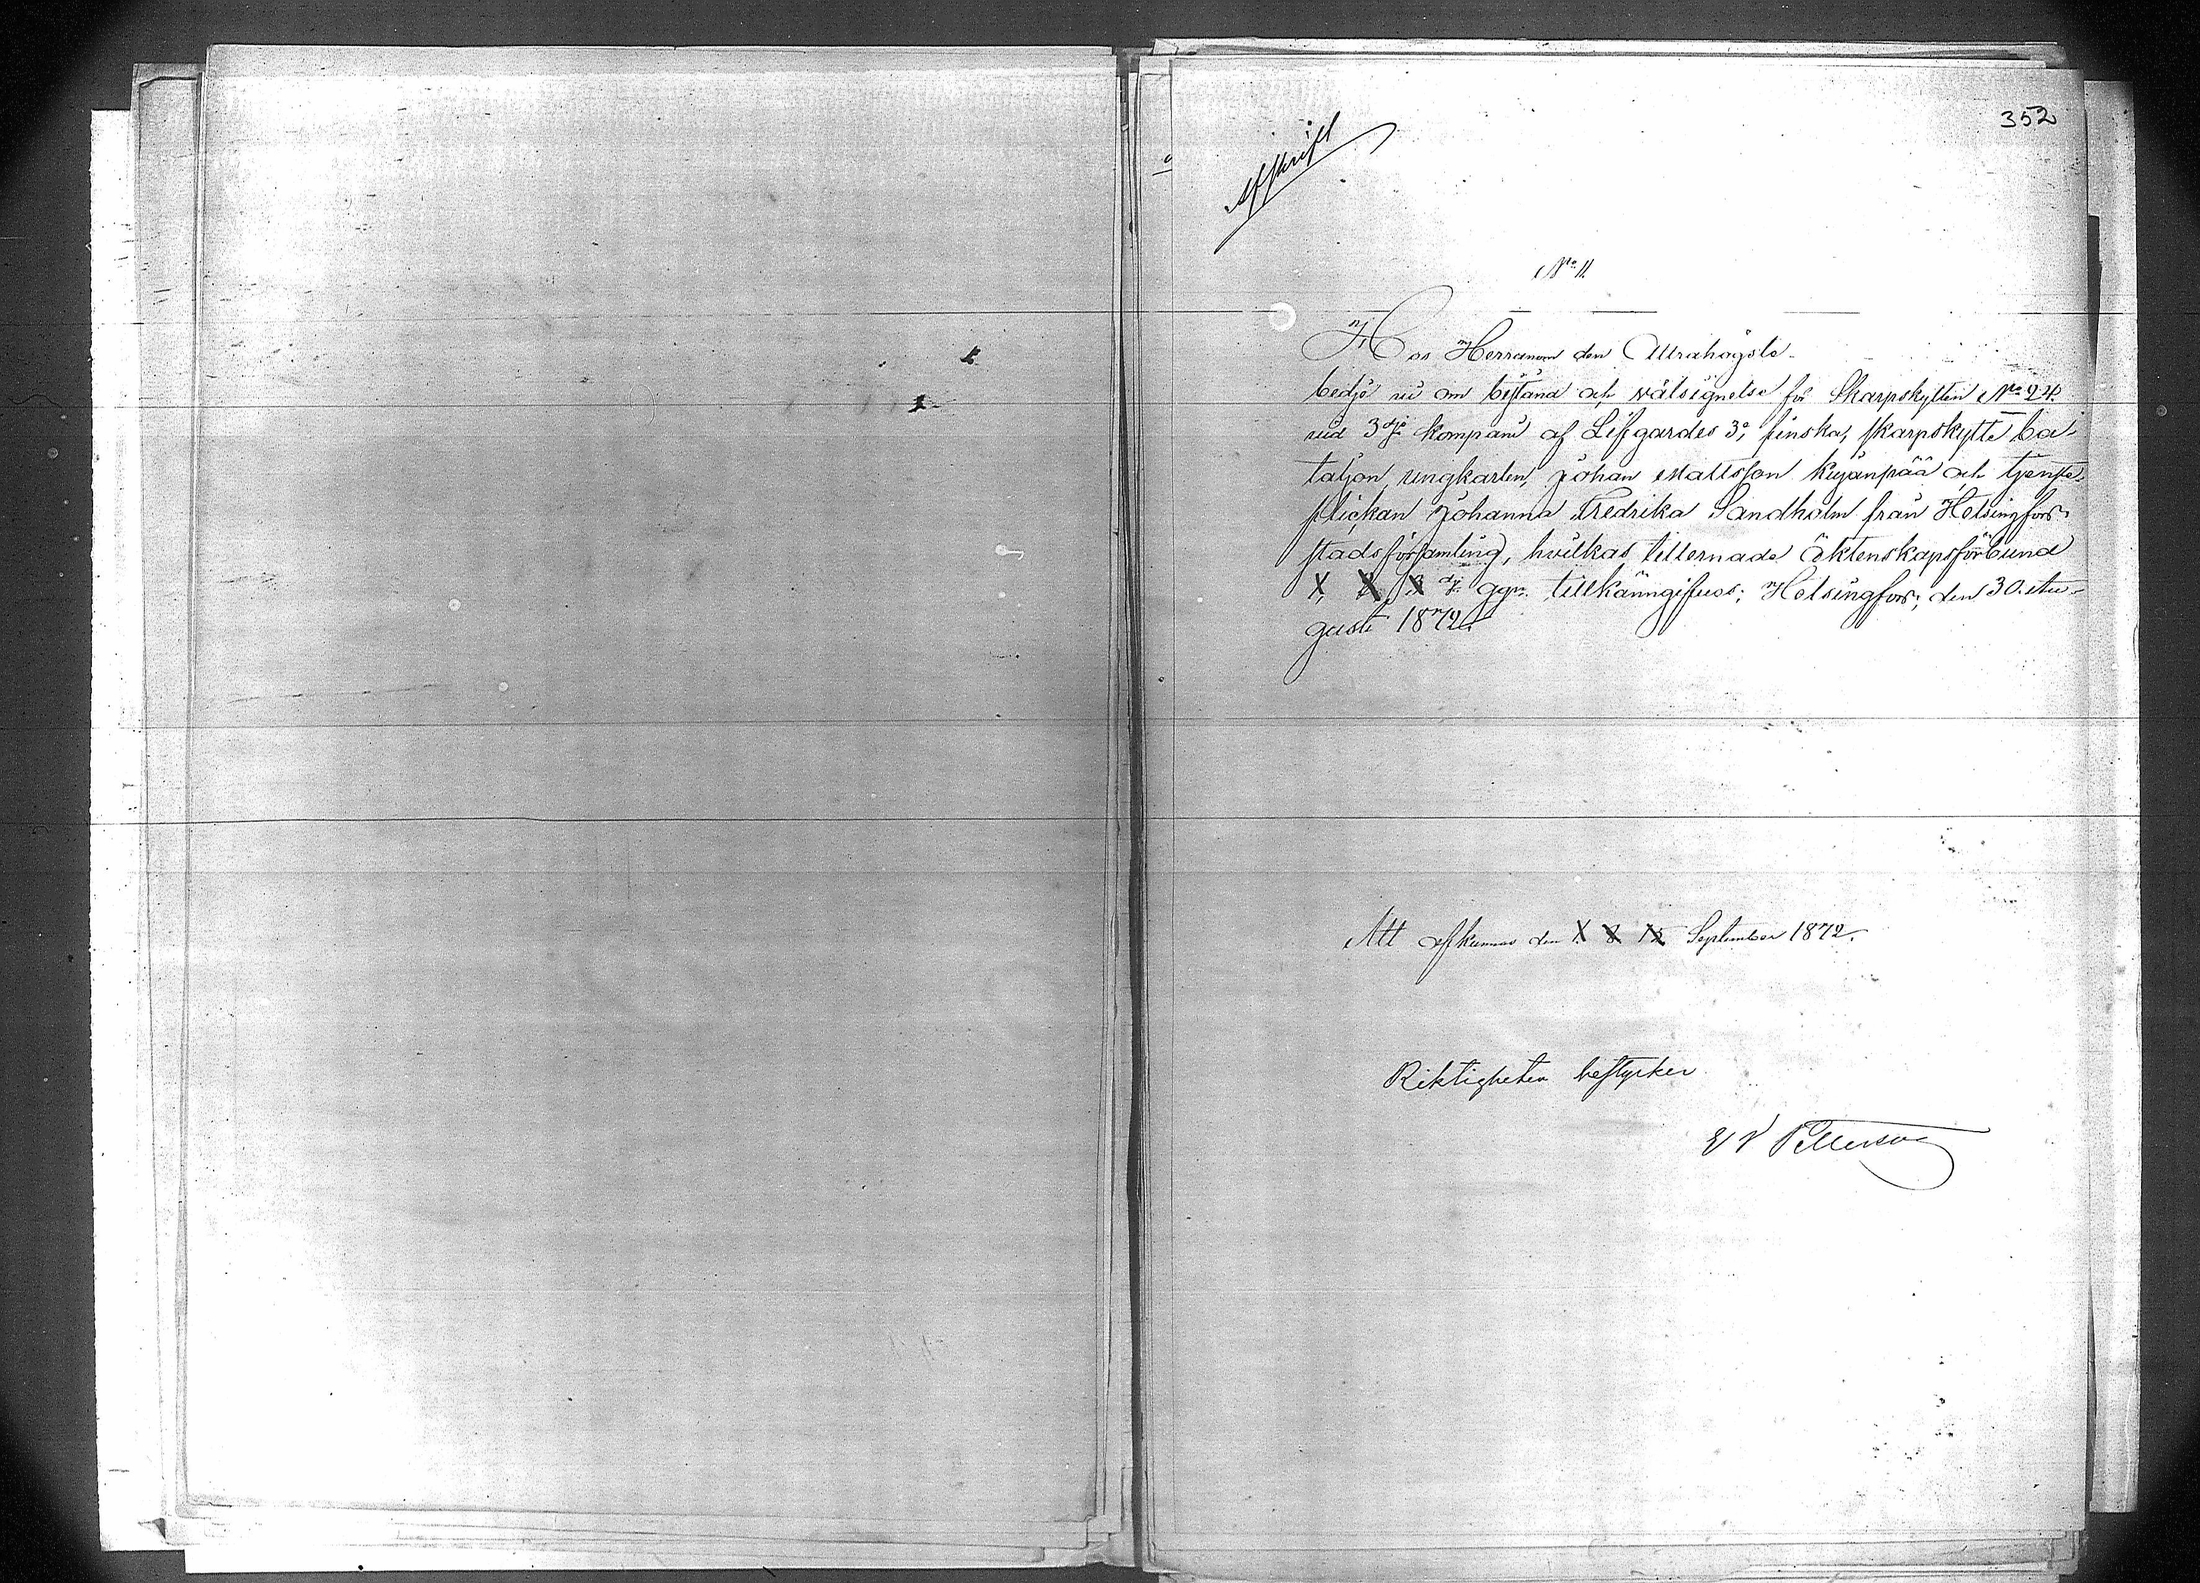 352
Afskrift
No 11.
Hos Herranom den Allrahögste
bedje vi om bistånd och välsignelse för Skarpskytten No 24.
vid 3dje kompani af Lifgardes 3e, finska, skarpskytte ba-
taljon, ungkarlen, Johan Mattsson Kujanpää och tjenste-
flickan Johanna Fredrika Sandholm från Helsingfors
stads församling, hvilkas tillernade äktenskapsförbund
1, 2, 3 dje ggn. tillkänngifves; Helsingfors, den 30. Au-
gusti 1872.
Att afkunnas den 1. 8 15 September 1872.
Riktigheten bestyrker
Pettersson